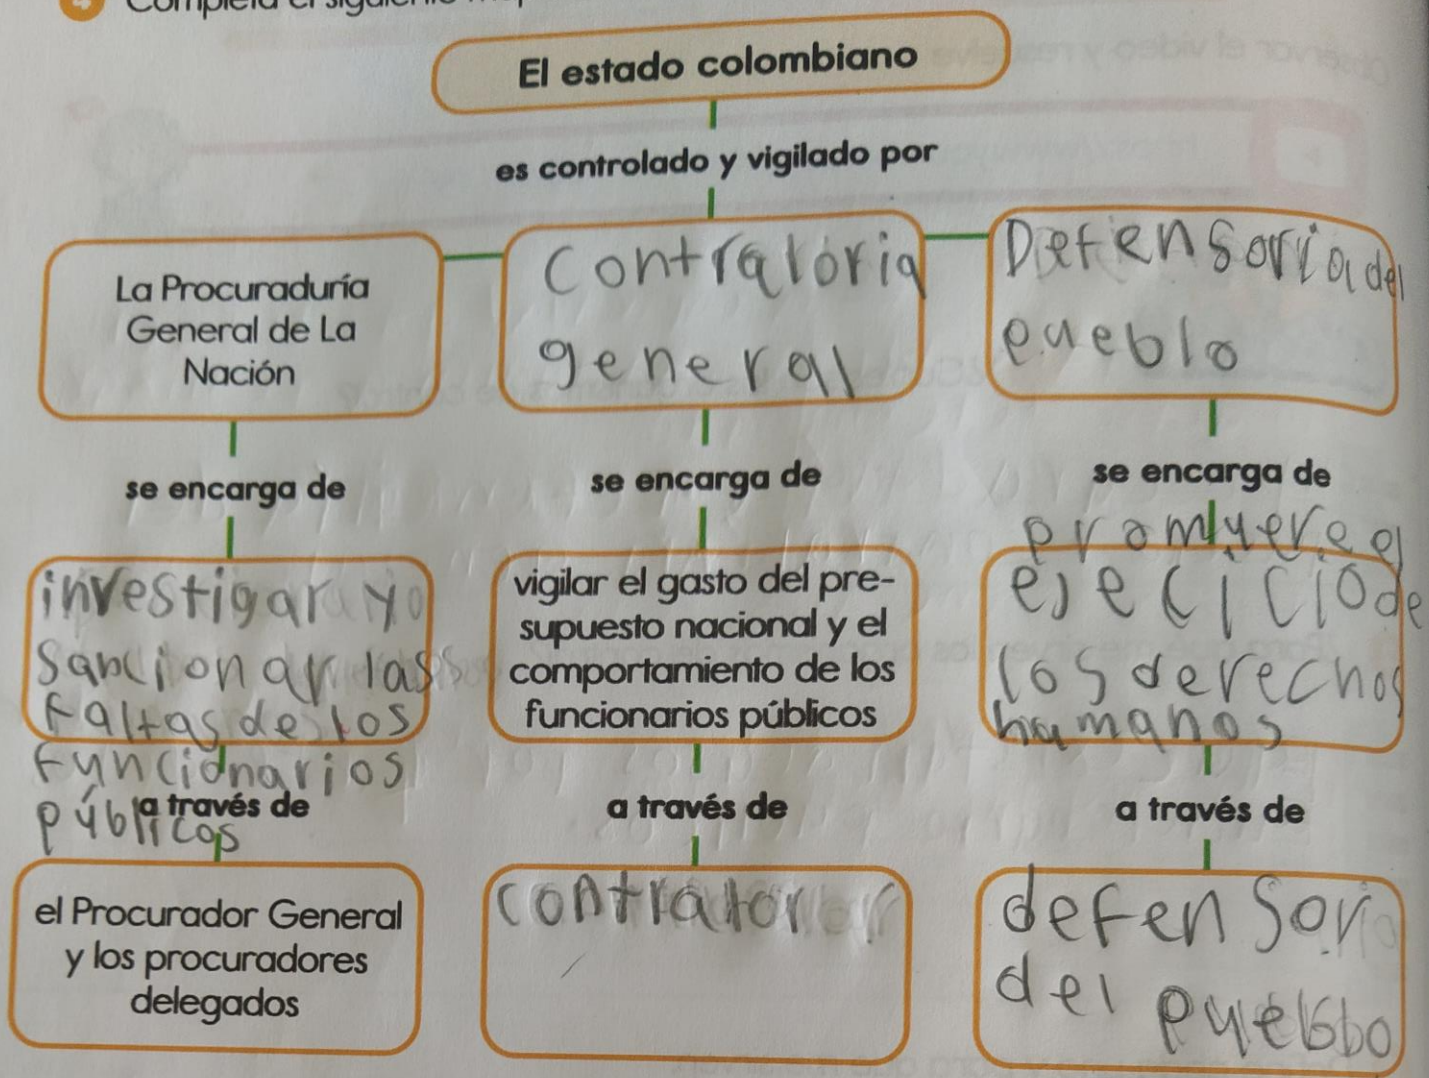 Completa el siguiente
El estado colombiano
es controlado y vigilado por
La Procuraduría
General de La
Nación
Contraloria
general
Defensoria del
pueblo
se encarga de
se encarga de
se encarga de
investigar y
sancionar las
faltas de los
funcionarios
públicos
vigilar el gasto del pre-
supuesto nacional y el
comportamiento de los
funcionarios públicos
promuere el
ejecicio de
los derechos
humanos
a través de
a través de
a través de
el Procurador General
y los procuradores
delegados
contralor
defensor
del pueblo